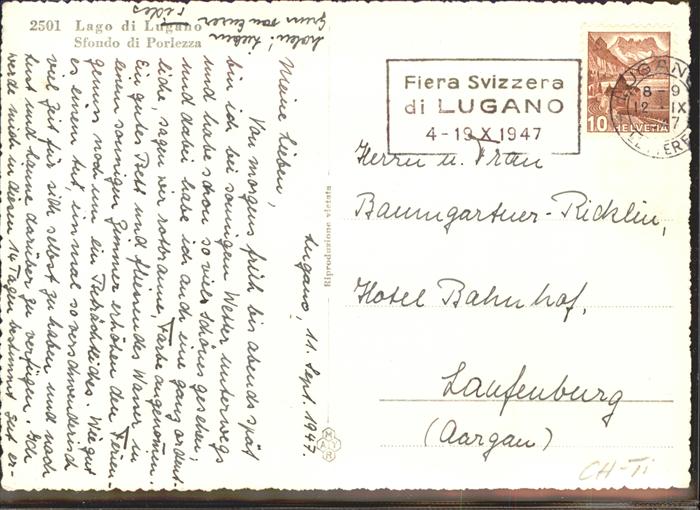 2501 Lago di Lugano
Sfondo di Porlezza
Lugano, 11. Sept. 1947.
Meine Lieben,
Von morgens früh bis abends spät
bin ich bei sonnigem Wetter unterwegs
und habe schon so viel Schönes gesehen,
und dabei habe ich auch eine ganz ordent-
liche, sagen wir rotbraune, Farbe angenommen.
Ein gutes Bett und fliessendes Wasser in
einem sonnigen Zimmer erhöhen den Ferien-
genuss noch um ein Beträchtliches. Wie gut
es einem tut, einmal so verschwenderisch
viel Zeit für sich selbst zu haben und nach
Lust und Laune darüber zu verfügen. Ich
werde mich in den 14 Tagen bestimmt gut er-
holen! Lieben
Gruss von Eurer
Riproduzione vietata
Fiera Svizzera
di LUGANO
4-19.X.1947
10 HELVETIA
LUGANO
8-9
12 IX
7
LETTERE
Herrn u. Frau
Baumgartner-Ricklin,
Hotel Bahnhof,
Laufenburg
(Aargau)
CH-Ti